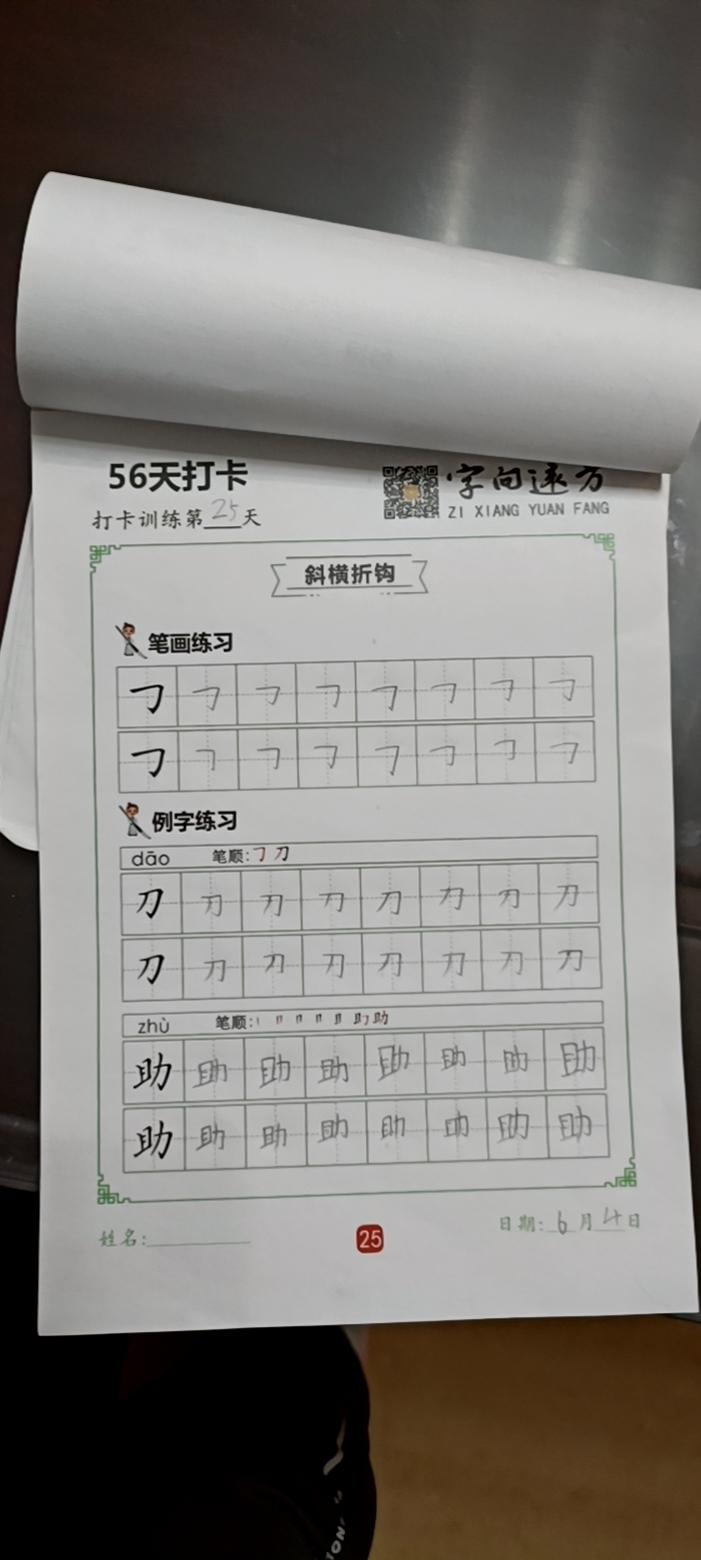 56天打卡
字向远方
打卡训练第25天
ZI XIANG YUAN FANG
斜横折钩
笔画练习
㇆ ㇆ ㇆ ㇆ ㇆ ㇆ ㇆ ㇆
㇆ ㇆ ㇆ ㇆ ㇆ ㇆ ㇆ ㇆
例字练习
dāo 笔顺:㇆ 刀
刀 刀 刀 刀 刀 刀 刀 刀
刀 刀 刀 刀 刀 刀 刀 刀
zhù 笔顺: 助
助 助 助 助 助 助 助 助
助 助 助 助 助 助 助 助
姓名:
25
日期:6月4日